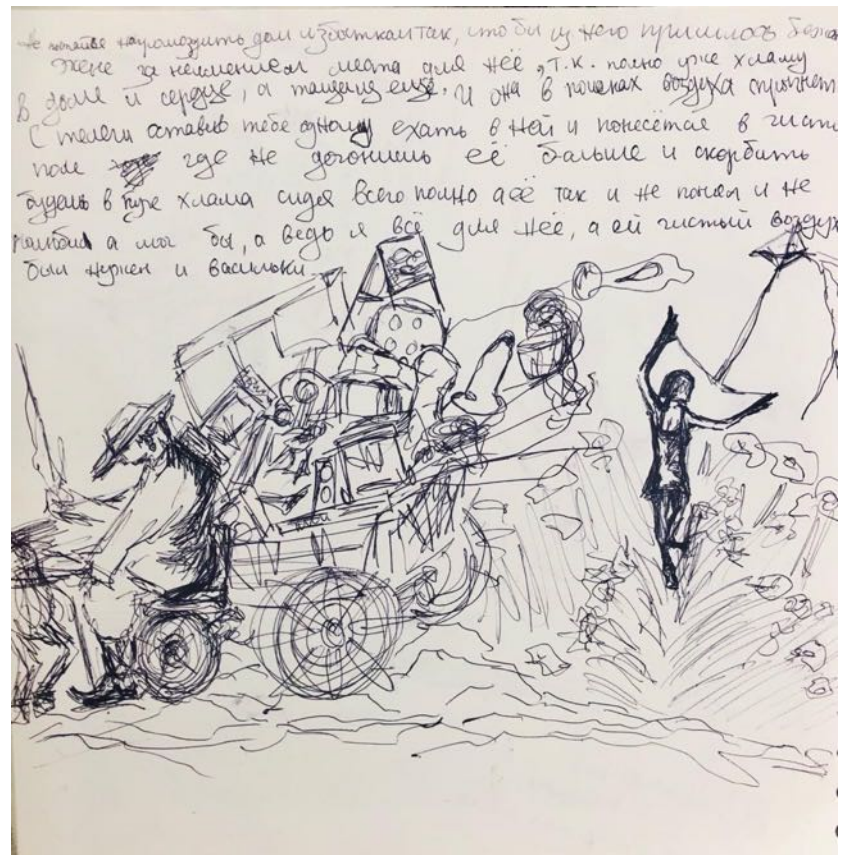 Не пытайся нагромоздить дом избытком так, что бы из него пришлось бежа
жене за неимением места для неё, т.к. полно уже хламу
в доме и сердце, а тащишь ещё. И она в поисках воздуха спрыгнет
с телеги оставив тебе одному ехать в ней и понесётся в чисто
поле где не догонишь её больше и скорбить
будешь в куче хлама сидя всего полно а её так и не понял и не
полюбил а мог бы, а ведь я всё для неё, а ей чистый воздух
был нужен и васильки